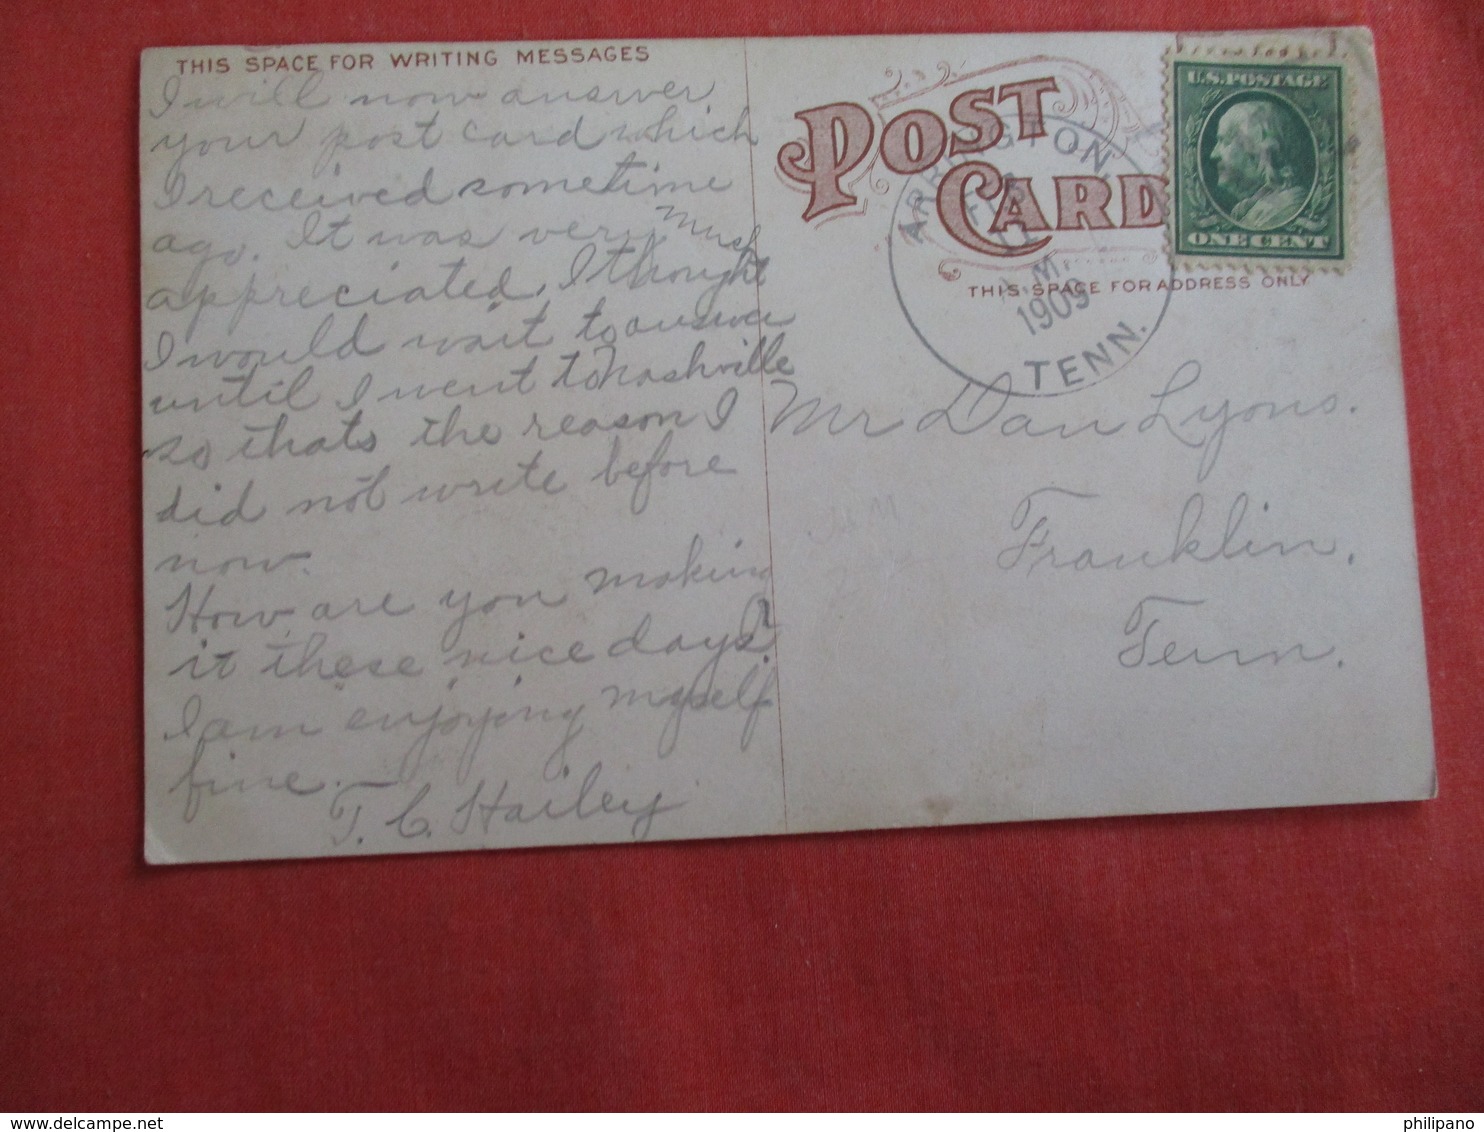 THIS SPACE FOR WRITING MESSAGES
I will now answer
your post card which
I received sometime
ago. It was very much
appreciated, I thought
I would wait to answer
until I went to Nashville
so thats the reason I
did not write before
now.
How are you making
it these nice days?
I am enjoying myself
fine.
T. C. Hailey
POST
CARD
THIS SPACE FOR ADDRESS ONLY
U.S. POSTAGE
ONE CENT
ARRINGTON,
M.
1909
TENN.
Mr Dan Lyons.
Franklin,
Tenn.
philipano